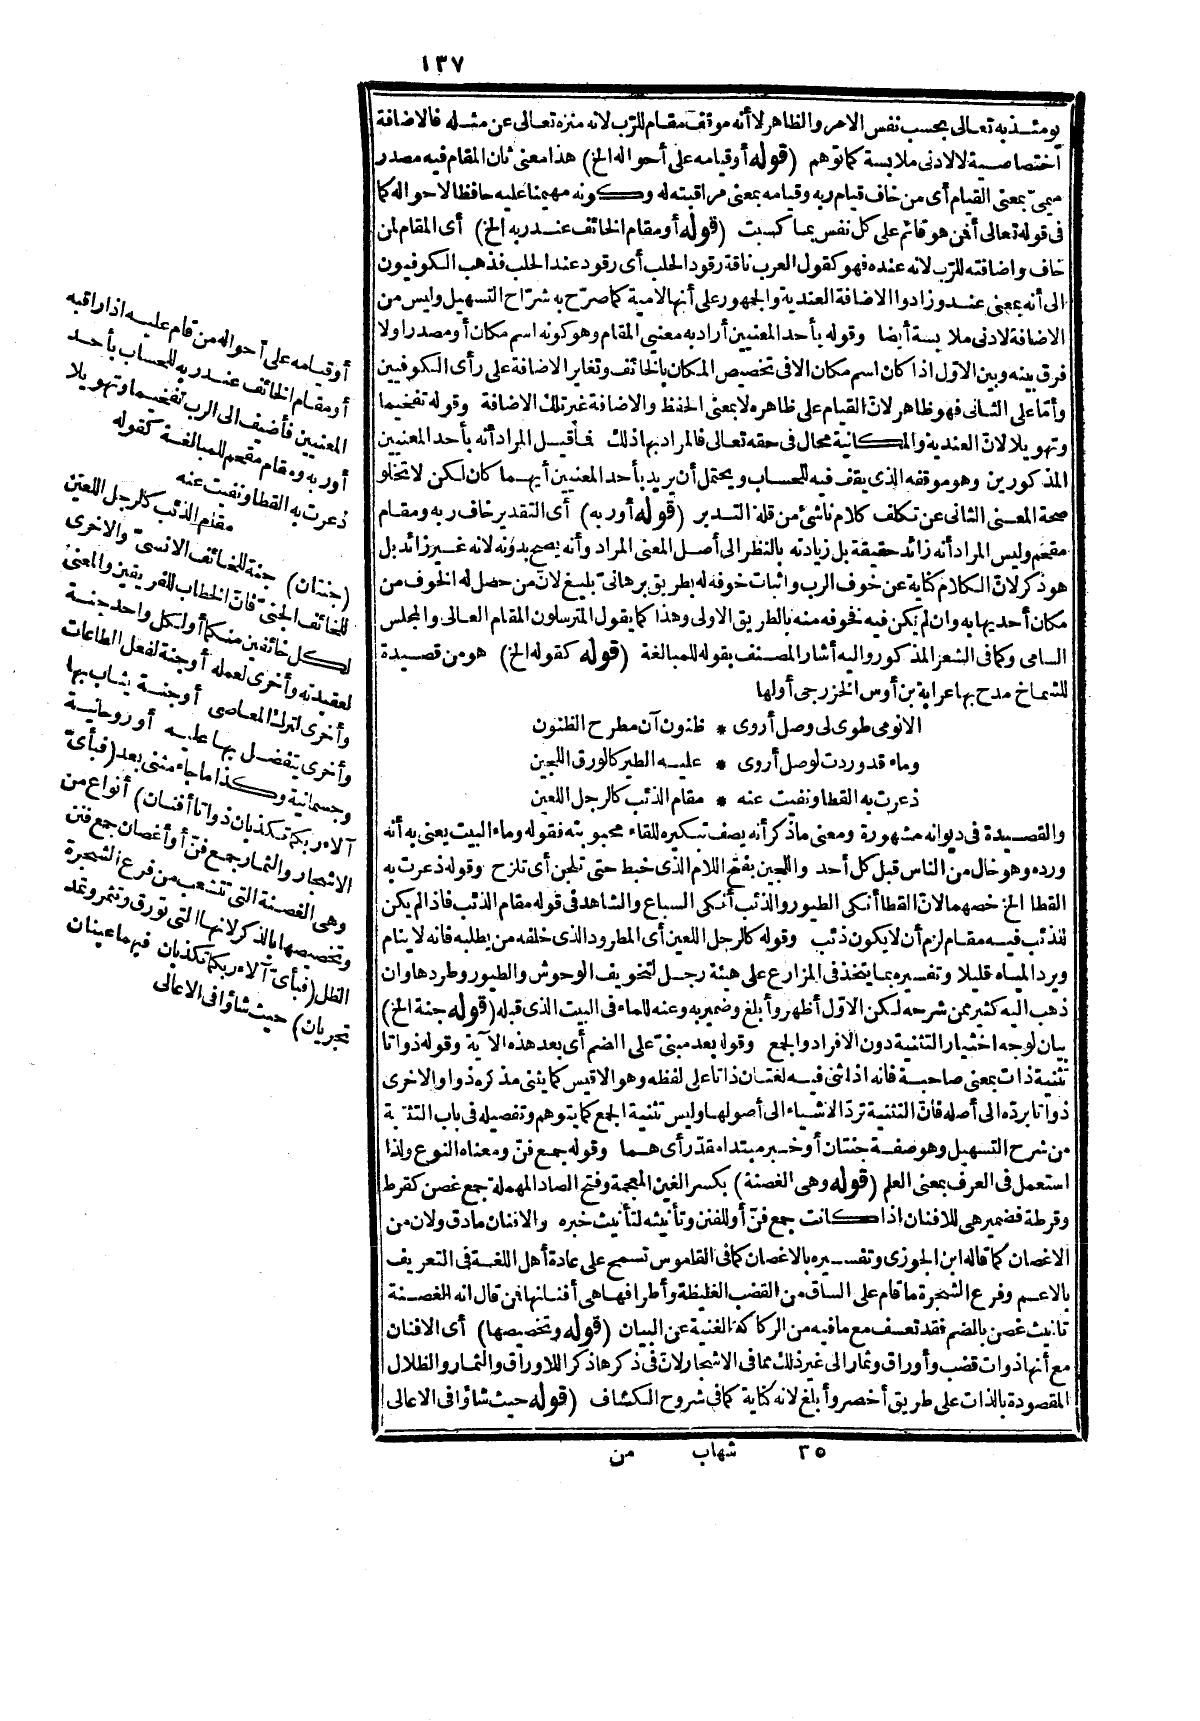 ١٣٧
يومئذ به تعالى بحسب نفس الامر والظاهر لا أنه موقف مقام للرّب لانه منزه تعالى عن مثله فالاضافة
اختصاصية لا لادنى ملابسة كما توهم (قوله أو قيامه على أحواله الخ) هذا معنى ثان المقام فيه مصدر
ميميّ بمعنى القيام أى من خاف قيام ربه وقيامه بمعنى مراقبته له وكونه مهيمنا عليه حافظا لاحواله كما
فى قوله تعالى أفمن هو قائم على كل نفس بما كسبت (قوله أو مقام الخائف عند ربه الخ) أى المقام لمن
خاف واضافته للرّب لانه عنده فهو كقول العرب ناقة رقود الحلب أى رقود عند الحلب فذهب الكوفيون
الى أنه بمعنى عند وزادوا الاضافة العندية والجمهور على أنها لامية كما صرّح به شرّاح التسهيل وليس من
الاضافة لادنى ملابسة أيضا وقوله بأحد المعنيين أراد به معنيي المقام وهو كونه اسم مكان أو مصدرا ولا
فرق بينه وبين الاوّل اذا كان اسم مكان الا فى تخصيص المكان بالخائف وتغاير الاضافة على رأى الكوفيين
وأمّا على الثانى فهو ظاهر لانّ القيام على ظاهره لا بمعنى الحفظ والاضافة غير تلك الاضافة وقوله تفخيما
وتهويلا لانّ العندية والمكانية محال فى حقه تعالى فالمراد بها ذلك فما قيل المراد أنه بأحد المعنيين
المذكورين وهو موقفه الذى يقف فيه للحساب ويحتمل أن يريد بأحد المعنيين أيهما كان لكن لا تخلو
صحة المعنى الثانى عن تكلف كلام ناشئ من قلة التدبر (قوله أو ربه) أى التقدير خاف ربه ومقام
مقحم وليس المراد أنه زائد حقيقة بل زيادته بالنظر الى أصل المعنى المراد وأنه يصح بدونه لانه غير زائد بل
هو ذكر لانّ الكلام كناية عن خوف الرب واثبات خوفه له بطريق برهانىّ بليغ لانّ من حصل له الخوف من
مكان أحد يهابه وان لم يكن فيه فخوفه منه بالطريق الاولى وهذا كما يقول المترسلون المقام العالى والمجلس
السامى وكما فى الشعر المذكور واليه أشار المصنف بقوله للمبالغة (قوله كقوله الخ) هو من قصيدة
للشماخ مدح بها عرابة بن أوس الخزرجى أولها
الا نومى طوى لى وصل أروى * ظنون آن مطرح الظنون
وماء قد وردت لوصل أروى * عليه الطير كالورق اللجين
ذعرت به القطا ونفيت عنه * مقام الذئب كالرجل اللعين
والقصيدة فى ديوانه مشهورة ومعنى ما ذكر أنه يصف تبكيره للقاء محبوبته فقوله وماء البيت يعنى به أنه
ورده وهو خال من الناس قبل كل أحد واللجين بفتح اللام الذى خبط حتى تلجن أى تلزج وقوله ذعرت به
القطا الخ خصهما لانّ القطا أنكى الطيور والذئب أنكى السباع والشاهد فى قوله مقام الذئب فاذا لم يكن
للذئب فيه مقام لزم أن لا يكون ذئب وقوله كالرجل اللعين أى المطرود الذى خلفه من يطلبه فانه لا ينام
ويرد المياه قليلا وتفسيره بما يتخذ فى المزارع على هيئة رجل لتخويف الوحوش والطيور وطردها وان
ذهب اليه كثير ممن شرحه لكن الاوّل أظهر وأبلغ وضمير به وعنه للماء فى البيت الذى قبله (قوله جنة الخ)
بيان لوجه اختيار التثنية دون الافراد والجمع وقوله بعد مبنىّ على الضم أى بعد هذه الآية وقوله ذواتا
تثنية ذات بمعنى صاحبة فانه اذا ثنى فيه لغتان ذاتا على لفظه وهو الاقيس كما يثنى مذكره ذوا والاخرى
ذواتا بردّه الى أصله فانّ التثنية تردّ الاشياء الى أصولها وليس تثنية الجمع كما يتوهم وتفصيله فى باب التثنية
من شرح التسهيل وهو صفة جنتان أو خبر مبتدا مقدّر أى هما وقوله جمع فنّ ومعناه النوع ولذا
استعمل فى العرف بمعنى العلم (قوله وهى الغصنة) بكسر الغين المعجمة وفتح الصاد المهملة جمع غصن كقرط
وقرطة فضمير هى للافنان اذا كانت جمع فنّ أو للفنن وتأنيثه لتأنيث خبره والافنان ما دق ولان من
الاغصان كما قاله ابن الجوزى وتفسيره بالاغصان كما فى القاموس تسمح على عادة أهل اللغة فى التعريف
بالاعم وفرع الشجرة ما قام على الساق من القضب الغليظة وأطرافها هى أفنانها فمن قال انه الغصنة
تانيث غصن بالضم فقد تعسف مع ما فيه من الركاكة الغنية عن البيان (قوله وتخصيصها) أى الافنان
مع أنها ذوات قضب وأوراق وثمار الى غير ذلك مما فى الاشجار لانّ فى ذكرها ذكر اللاوراق والثمار والظلال
المقصودة بالذات على طريق أخصر وأبلغ لانه كناية كما فى شروح الكشاف (قوله حيث شاؤا فى الاعالى
٣٥ شهاب من
أو قيامه على أحواله من قام عليه اذا راقبه
أو مقام الخائف عند ربه للحساب بأحد
المعنيين فأضيف الى الرب تفخيما وتهويلا
أو ربه ومقام مقحم للمبالغة كقوله
ذعرت به القطا ونفيت عنه
مقام الذئب كالرجل اللعين
(جنتان) جنة للخائف الانسىّ والاخرى
للخائف الجنىّ فانّ الخطاب للفريقين والمعنى
لكل خائفين منكما أو لكل واحد جنة
لعقيدته وأخرى لعمله أو جنة لفعل الطاعات
وأخرى لترك المعاصى أو جنة يثاب بها
وأخرى يتفضل بها عليه أو روحانية
وجسمانية وكذا ما جاء مثنى بعد (فبأىّ
آلاء ربكما تكذبان ذواتا أفنان) أنواع من
الاشجار والثمار جمع فنّ أو أغصان جمع فنن
وهى الغصنة التى تتشعب من فرع الشجرة
وتخصيصها بالذكر لانها التى تورق وتثمر وتمد
الظل (فبأىّ آلاء ربكما تكذبان فيهما عينان
تجريان) حيث شاؤا فى الاعالى